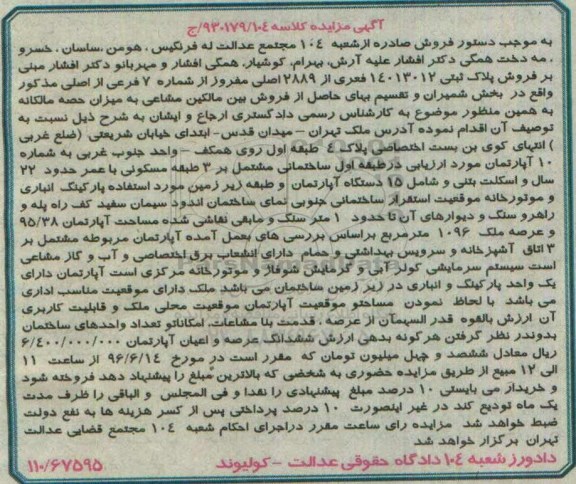 آگهی مزایده کلاسه ۹۳۰۱۷۹/۱۰۴/ج
به موجب دستور فروش صادره ازشعبه ۱۰۴ مجتمع عدالت له فرنگیس ، هومن ،ساسان ، خسرو
، مه دخت همگی دکتر افشار علیه آرش، بهرام، کوشیار، همگی افشار و مهربانو دکتر افشار مبنی
بر فروش پلاک ثبتی ۱۴۰۱۳۰۱۲ فعری از ۲۸۸۹ اصلی مفروز از شماره ۷ فرعی از اصلی مذکور
واقع در بخش شمیران و تقسیم بهای حاصل از فروش بین مالکین مشاعی به میزان حصه مالکانه
به همین منظور موضوع به کارشناس رسمی دادگستری ارجاع و ایشان به شرح ذیل نسبت به
توصیف آن اقدام نموده آدرس ملک تهران – میدان قدس- ابتدای خیابان شریعتی (ضلع غربی
) انتهای کوی بن بست اختصاصی پلاک ۴ طبقه اول روی همکف – واحد جنوب غربی به شماره
۱۰ آپارتمان مورد ارزیابی درطبقه اول ساختمانی مشتمل بر ۳ طبقه مسکونی با عمر حدود ۲۲
سال و اسکلت بتنی و شامل ۱۵ دستگاه آپارتمان و طبقه زیر زمین مورد استفاده پارکینگ انباری
و موتورخانه موقعیت استقرار ساختمانی جنوبی نمای ساختمان اندود سیمان سفید کف راه پله و
راهرو سنگ و دیوارهای آن تا حدود ۱ متر سنگ و مابقی نقاشی شده مساحت آپارتمان ۹۵/۳۸
و عرصه ملک ۱۰۹۶ مترمربع براساس بررسی های بعمل آمده آپارتمان مربوطه مشتمل بر
۳ اتاق آشپزخانه و سرویس بهداشتی و حمام دارای انشعاب برق اختصاصی و آب و گاز مشاعی
است سیستم سرمایشی کولر آبی و گرمایش شوفاژ و موتورخانه مرکزی است آپارتمان دارای
یک واحد پارکینگ و انباری در زیر زمین ساختمان می باشد ملک دارای موقعیت مناسب اداری
می باشد با لحاظ نمودن مساحتو موقعیت آپارتمان موقعیت محلی ملک و قابلیت کاربری
آن ارزش بالقوه قدر السهمآن از عرصه ، قدمت بنا مشاعات، امکاناتو تعداد واحدهای ساختمان
بدوندر نظر گرفتن هرگونه بدهی ارزش ششدانگ عرصه و اعیان آپارتمان ۶/۴۰۰/۰۰۰/۰۰۰
ریال معادل ششصد و چهل میلیون تومان که مقرر است در مورخ ۹۶/۶/۱۴ از ساعت ۱۱
الی ۱۲ مبیع از طریق مزایده حضوری به شخصی که بالاترین مبلغ را پیشنهاد دهد فروخته شود
و خریدار می بایستی ۱۰ درصد مبلغ پیشنهادی را نقدا و فی المجلس و الباقی را ظرف مدت
یک ماه تودیع کند در غیر اینصورت ۱۰ درصد پرداختی پس از کسر هزینه ها به نفع دولت
ضبط خواهد شد مزایده رای ساعت مقرر دراجرای احکام شعبه ۱۰۴ مجتمع قضایی عدالت
تهران برگزار خواهد شد
دادورز شعبه ۱۰۴ دادگاه حقوقی عدالت – کولیوند
۱۱۰/۶۷۵۹۵